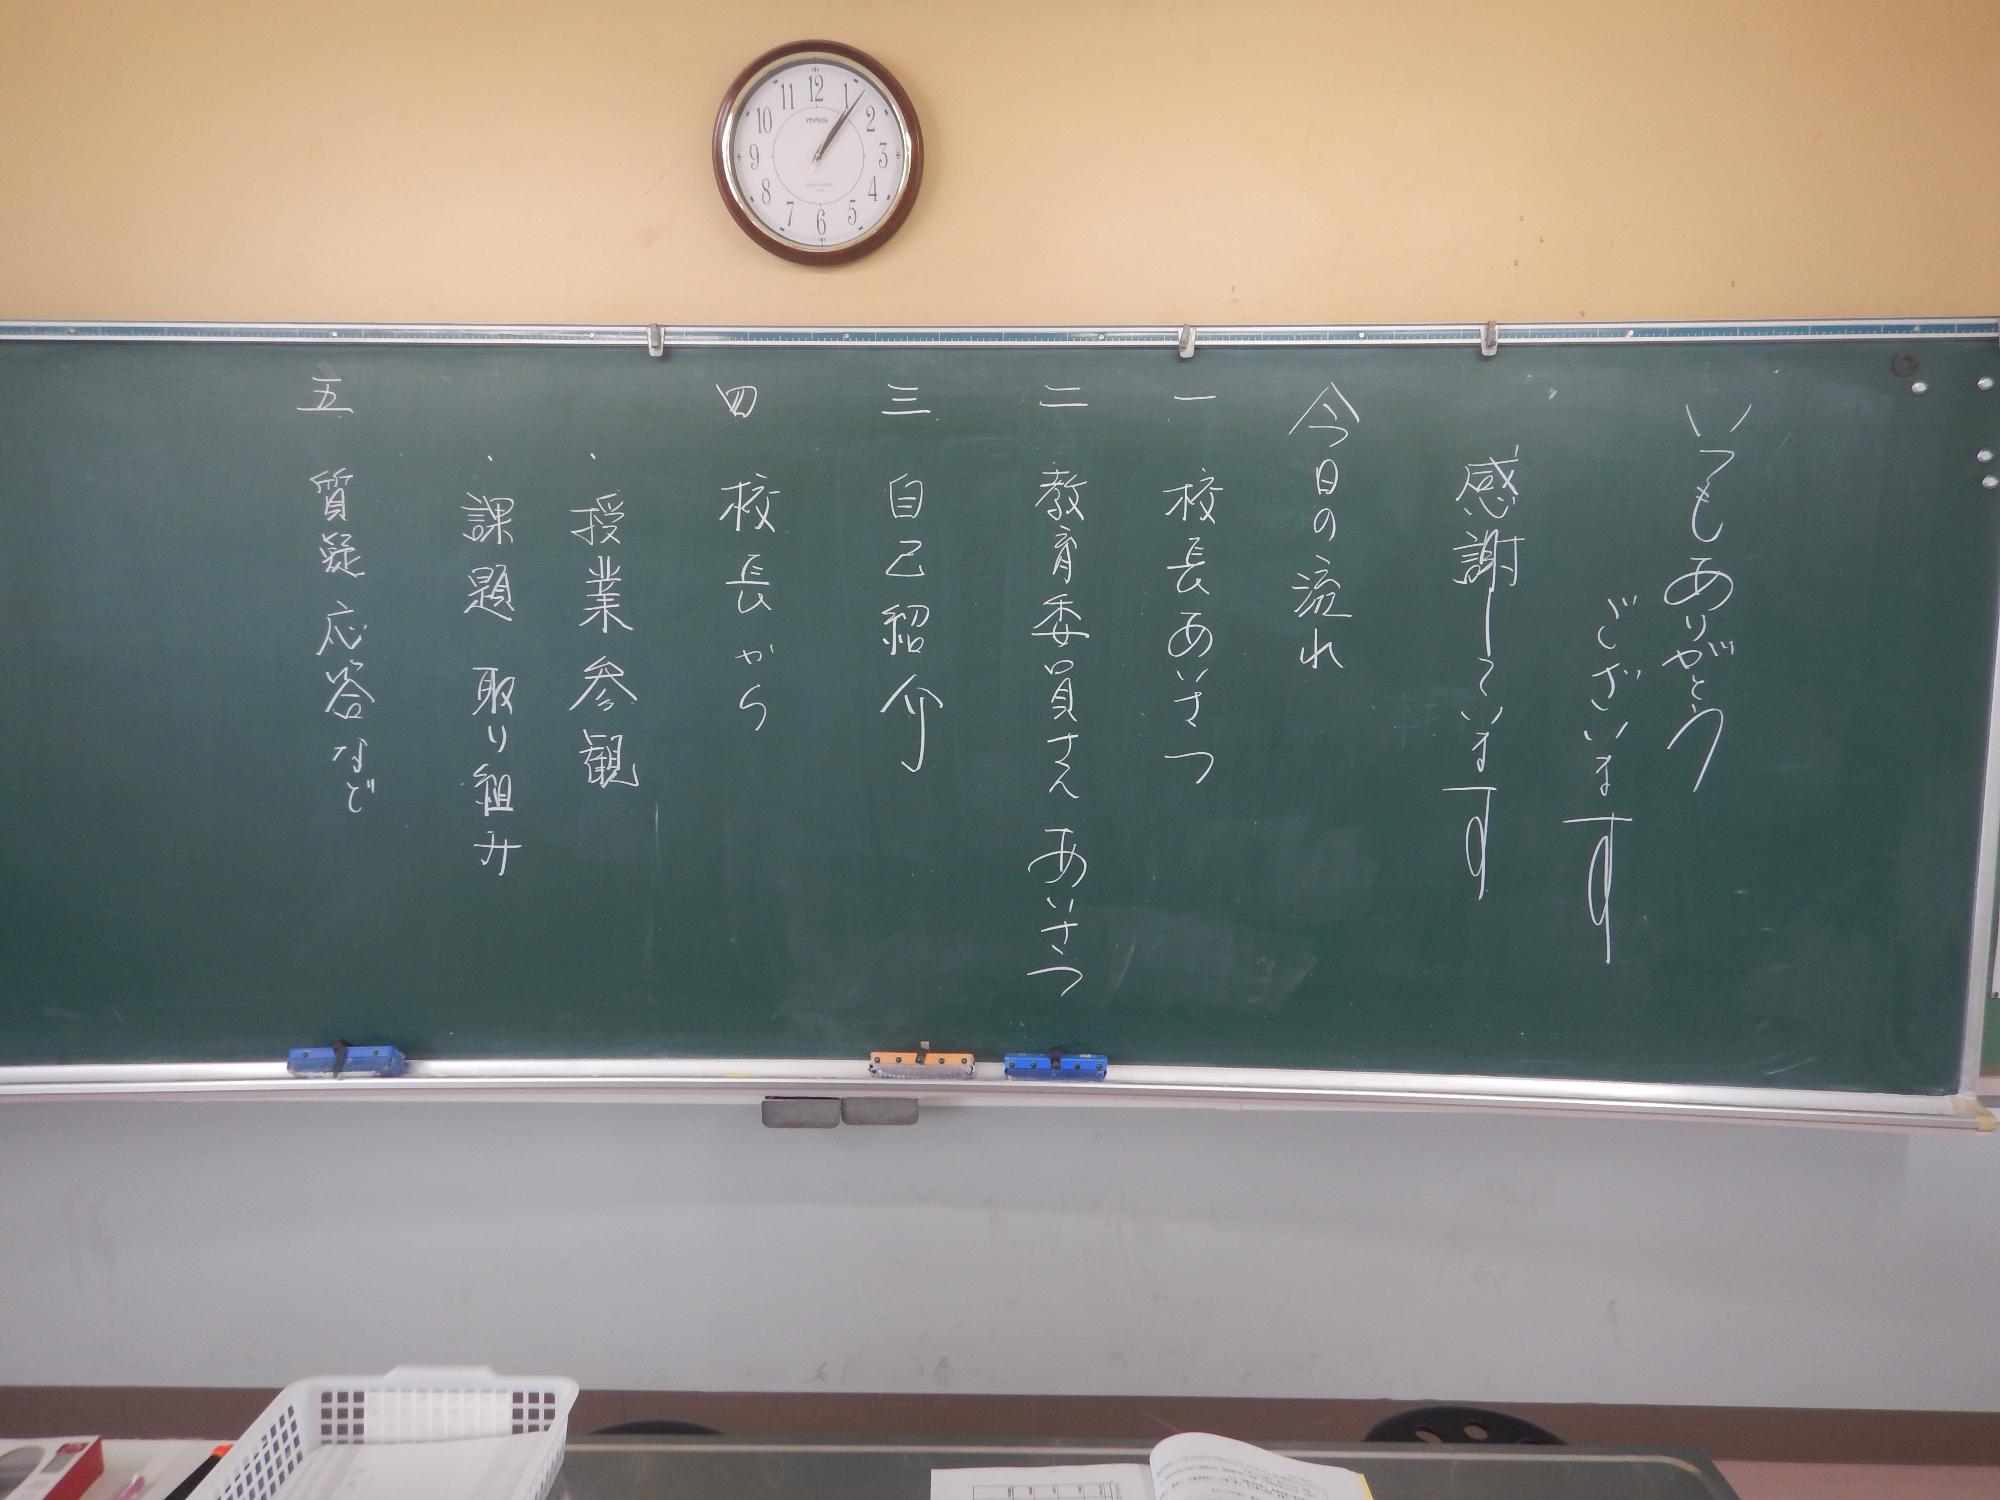 いつもありがとう
ございます
感謝しています
今日の流れ
一 校長あいさつ
二 教育委員さん あいさつ
三 自己紹介
四 校長から
・授業参観
・課題 取り組み
五 質疑応答など
12
1
2
3
4
5
6
7
8
9
10
11
MAG